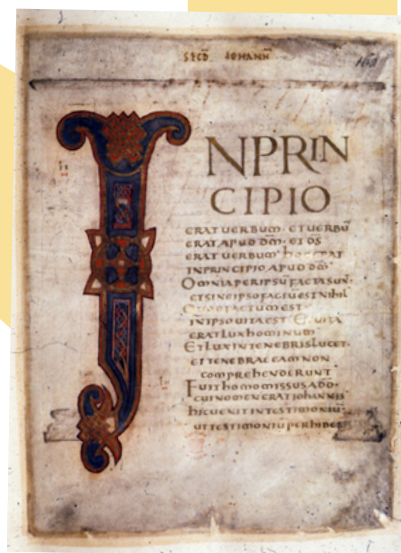 SECD IOHANN
INPRIN
CIPIO
ERAT UERBUM · ET UERBŪ
ERAT APUD DM̄ · ET D̄S
ERAT UERBUM hOC ERAT
IN PRINCIPIO APUD DM̄
OMNIA PER IPSŪ FACTA SUNT
ET SINE IPSO FACTU EST NIhIL
QUOD FACTUM EST
IN IPSO UITA EST · ET UITA
ERAT LUX hOMINUM
ET LUX IN TENEBRIS LUCET ·
ET TENEBRAE EAM NON
COMPREhENDERUNT
FUIT hOMO MISSUS A DŌ ·
CUI NOMEN ERAT IOhANNIS
hIC UENIT IN TESTIMONIŪ
UT TESTIMONIŪ PERhIBE